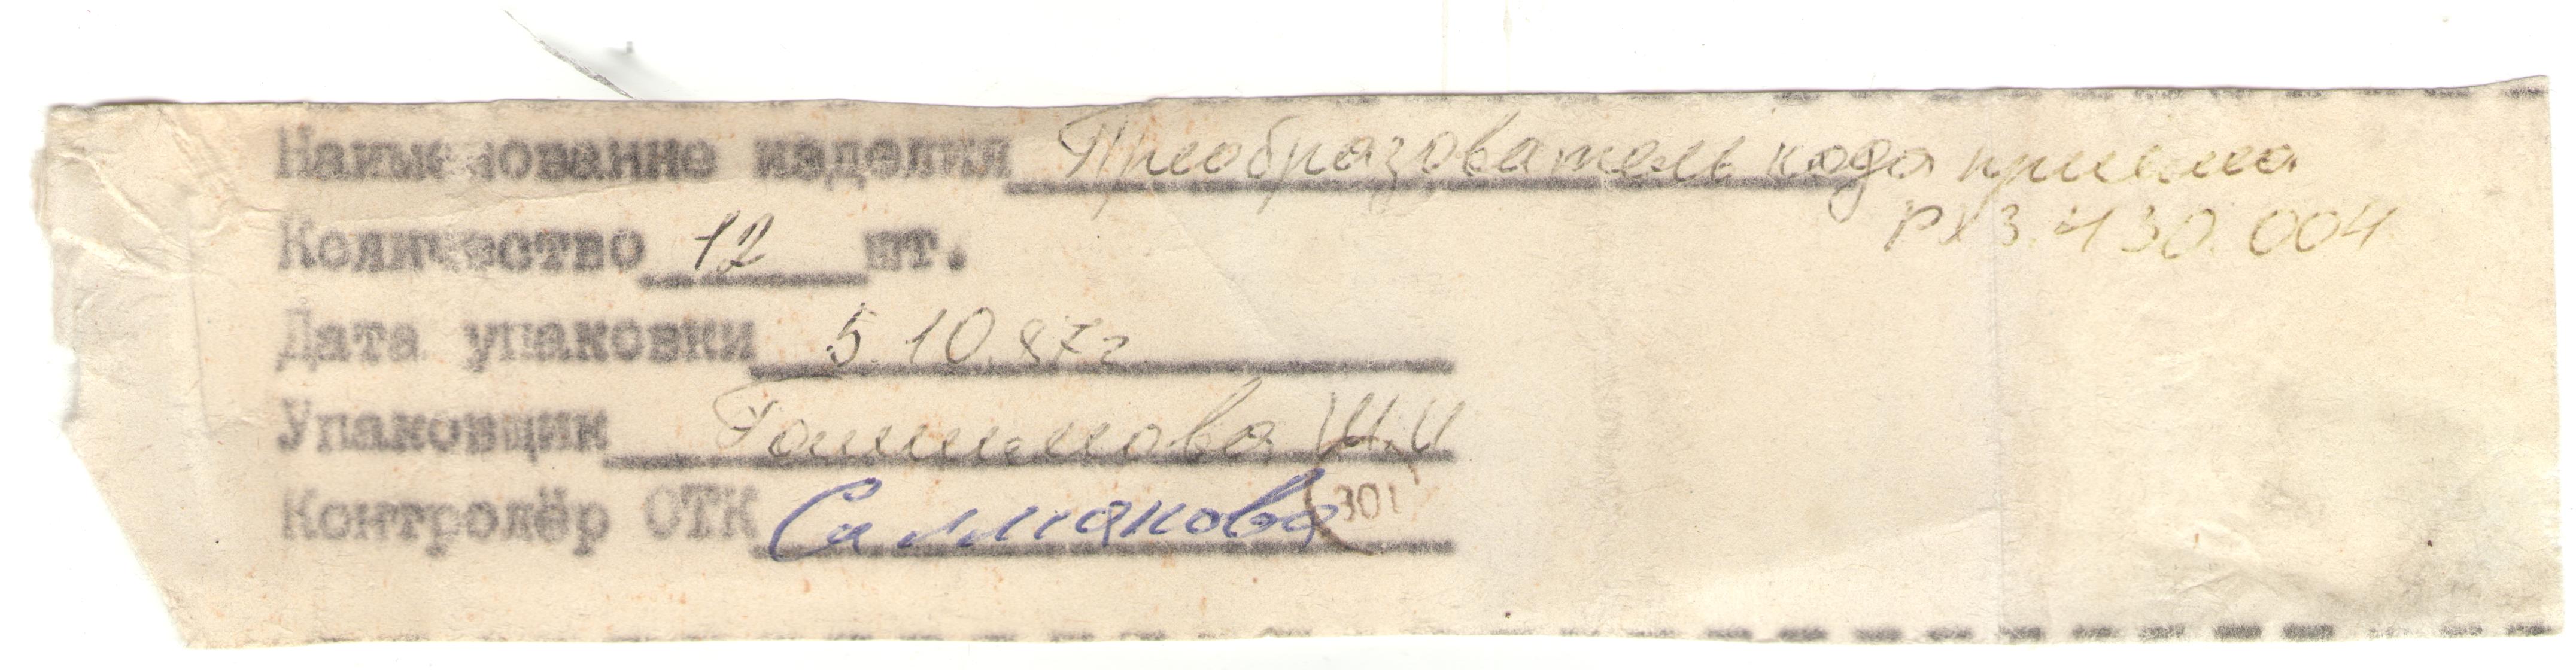 Наименование изделия Преобразователь кода приема
РХ3.430.004
Количество 12 шт.
Дата упаковки 5.10.87г
Упаковщик Ш.И
Контролёр ОТК 301